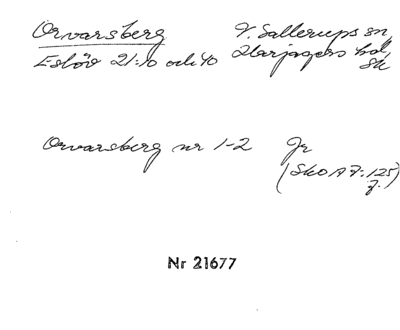 Orvarsberg V. Sallerups sn,
Eslöv 21:10 och 40 Harjagers hd,
Sk
Orvarsberg nr 1-2 Jr
(SkOA 7:125
f.)
Nr 21677